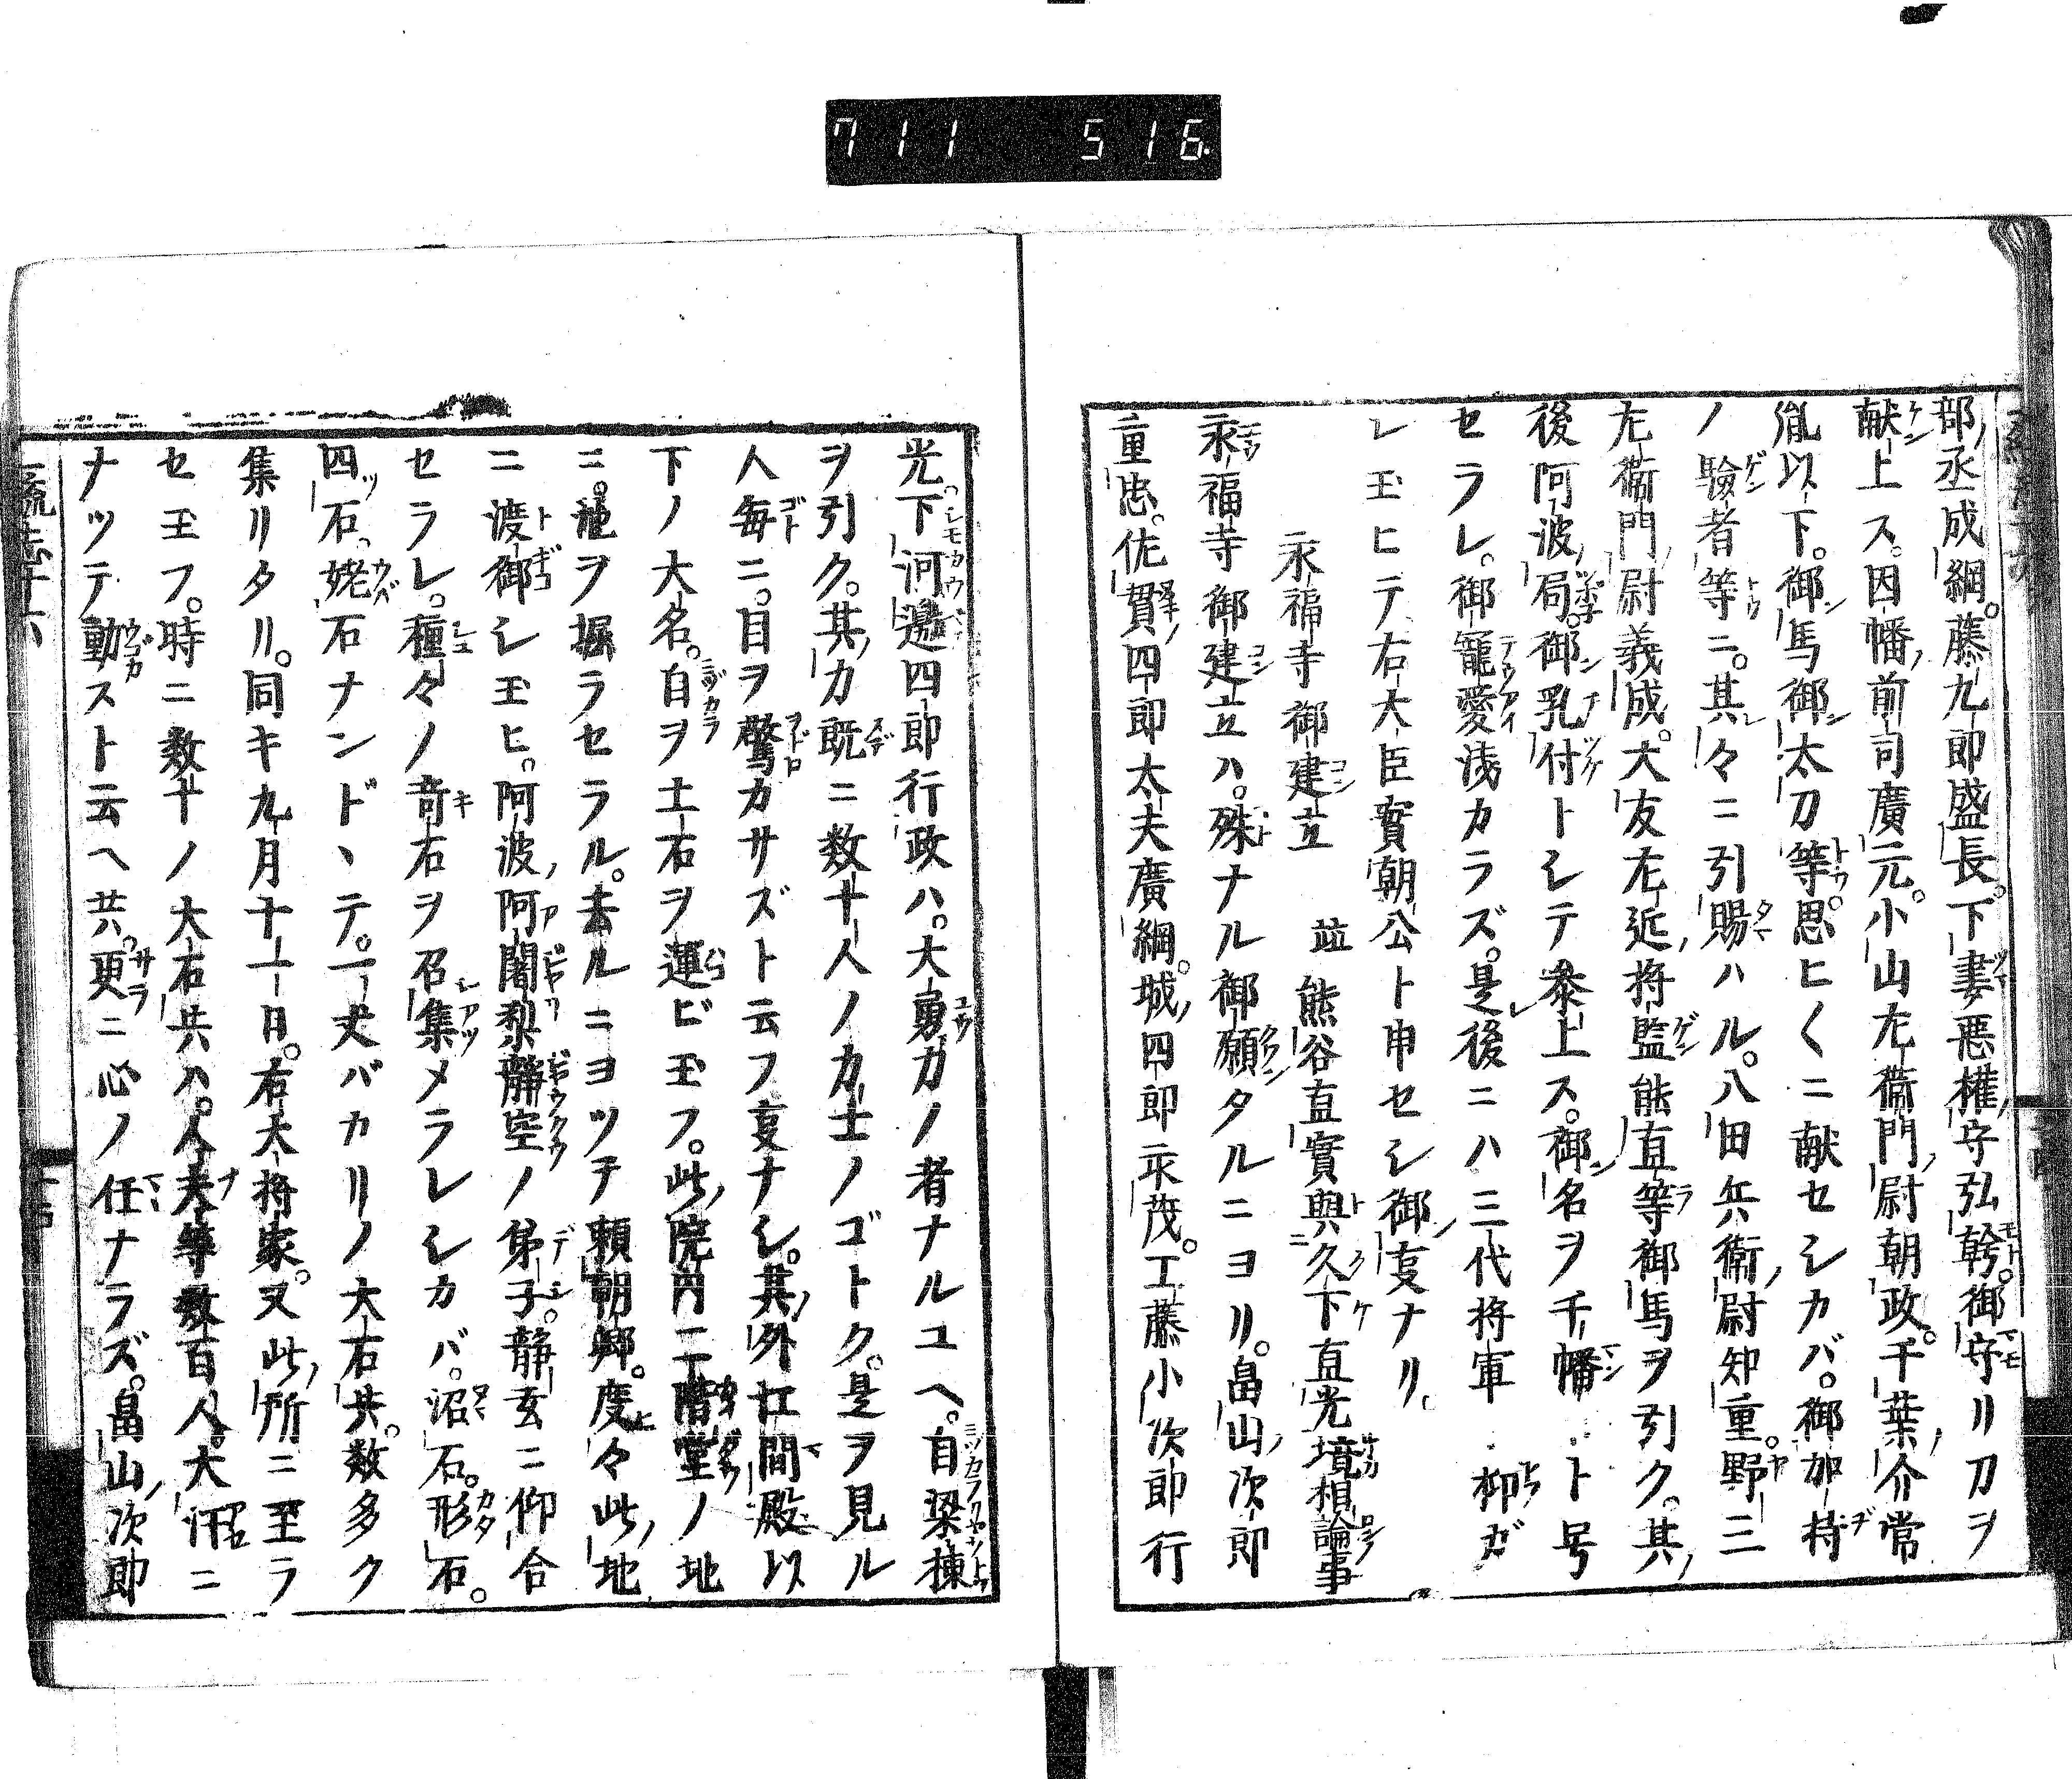 711 516
部丞成綱。藤九郎盛長。下妻悪権守弘幹。御守リ刀ヲ
献上ス。因幡前司廣元。小山左衞門尉朝政。千葉介常
胤以下。御馬御太刀等思ヒ〱ニ献セシカバ。御加持
ノ驗者等ニ。其々ニ引賜ハル。八田兵衞尉知重。野三
左衞門尉義成。大友左近将監能直等御馬ヲ引ク。其
後阿波局。御乳付トシテ参上ス。御名ヲ千幡ト号
セラレ。御寵愛淺カラズ。是後ニハ三代将軍 仰ガ
レ玉ヒテ右大臣實朝公ト申セシ御㕝ナリ。
永福寺御建立 並 熊谷直實與久下直光境相論事
永福寺御建立ハ。殊ナル御願タルニヨリ。畠山次郎
重忠。佐貫四郎太夫廣綱。城四郎永茂。工藤小次郎行
光。下河邊四郎行政ハ。大勇力ノ者ナルユヘ。自梁棟
ヲ引ク。其力既ニ数十人ノ力士ノゴトク。是ヲ見ル
人毎ニ。目ヲ驚カサズト云フ㕝ナシ。其外江間殿以
下ノ大名。自ヲ土石ヲ運ビ玉フ。此院内二階堂ノ地
ニ。池ヲ堀ラセラル。去ルニヨツテ頼朝卿。度々此地
ニ渡御シ玉ヒ。阿波阿闍梨靜空ノ弟子。静玄ニ仰合
セラレ。種々ノ奇石ヲ召集メラレシカバ。沼石。形石。
四石。姥石ナンドヽテ。一丈バカリノ大石共。数多ク
集リタリ。同キ九月十一日。右大将家。又此所ニ至ラ
セ玉フ。時ニ数十ノ大石共ハ。人夫等数百人。大汗ニ
ナツテ動スト云ヘ共。更ニ心ノ任ナラズ。畠山次郎